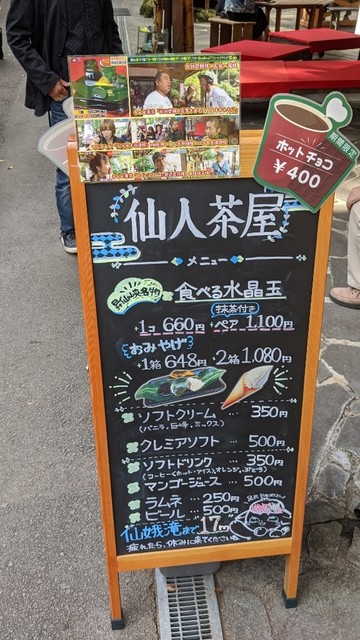 期間限定
ホットチョコ
¥400
仙人茶屋
メニュー
昇仙峡名物
食べる水晶玉
抹茶付き
1コ 660円 ペア 1,100円
おみやげ
1箱 648円 2箱 1,080円
ソフトクリーム … 350円
(バニラ、巨峰、ミックス)
クレミアソフト … 500円
ソフトドリンク … 350円
(コーヒー(ホット・アイス)、オレンジ、ぶどう)
マンゴージュース … 500円
ラムネ … 250円
ビール … 500円
仙娥滝まで17m
疲れたら、休みに来てくださいな